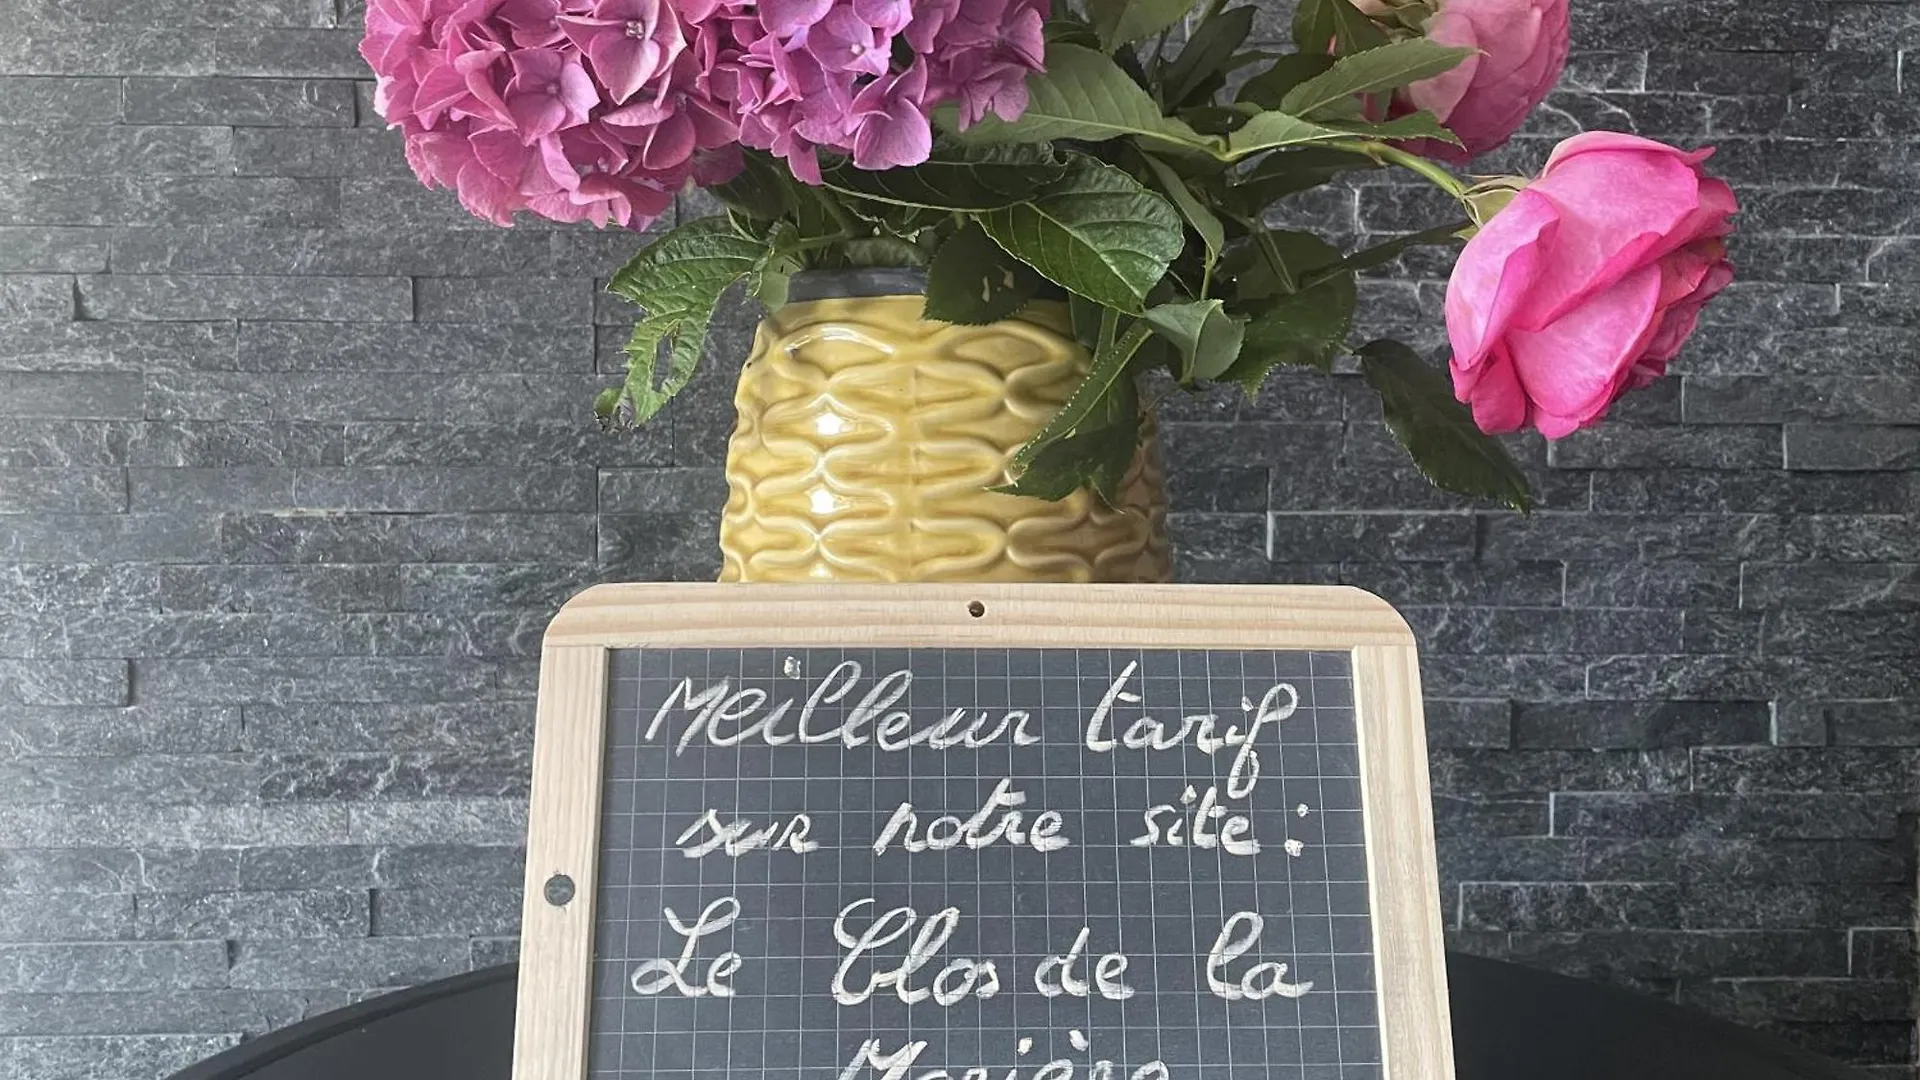 Meilleur tarif
sur notre site :
Le Clos de la